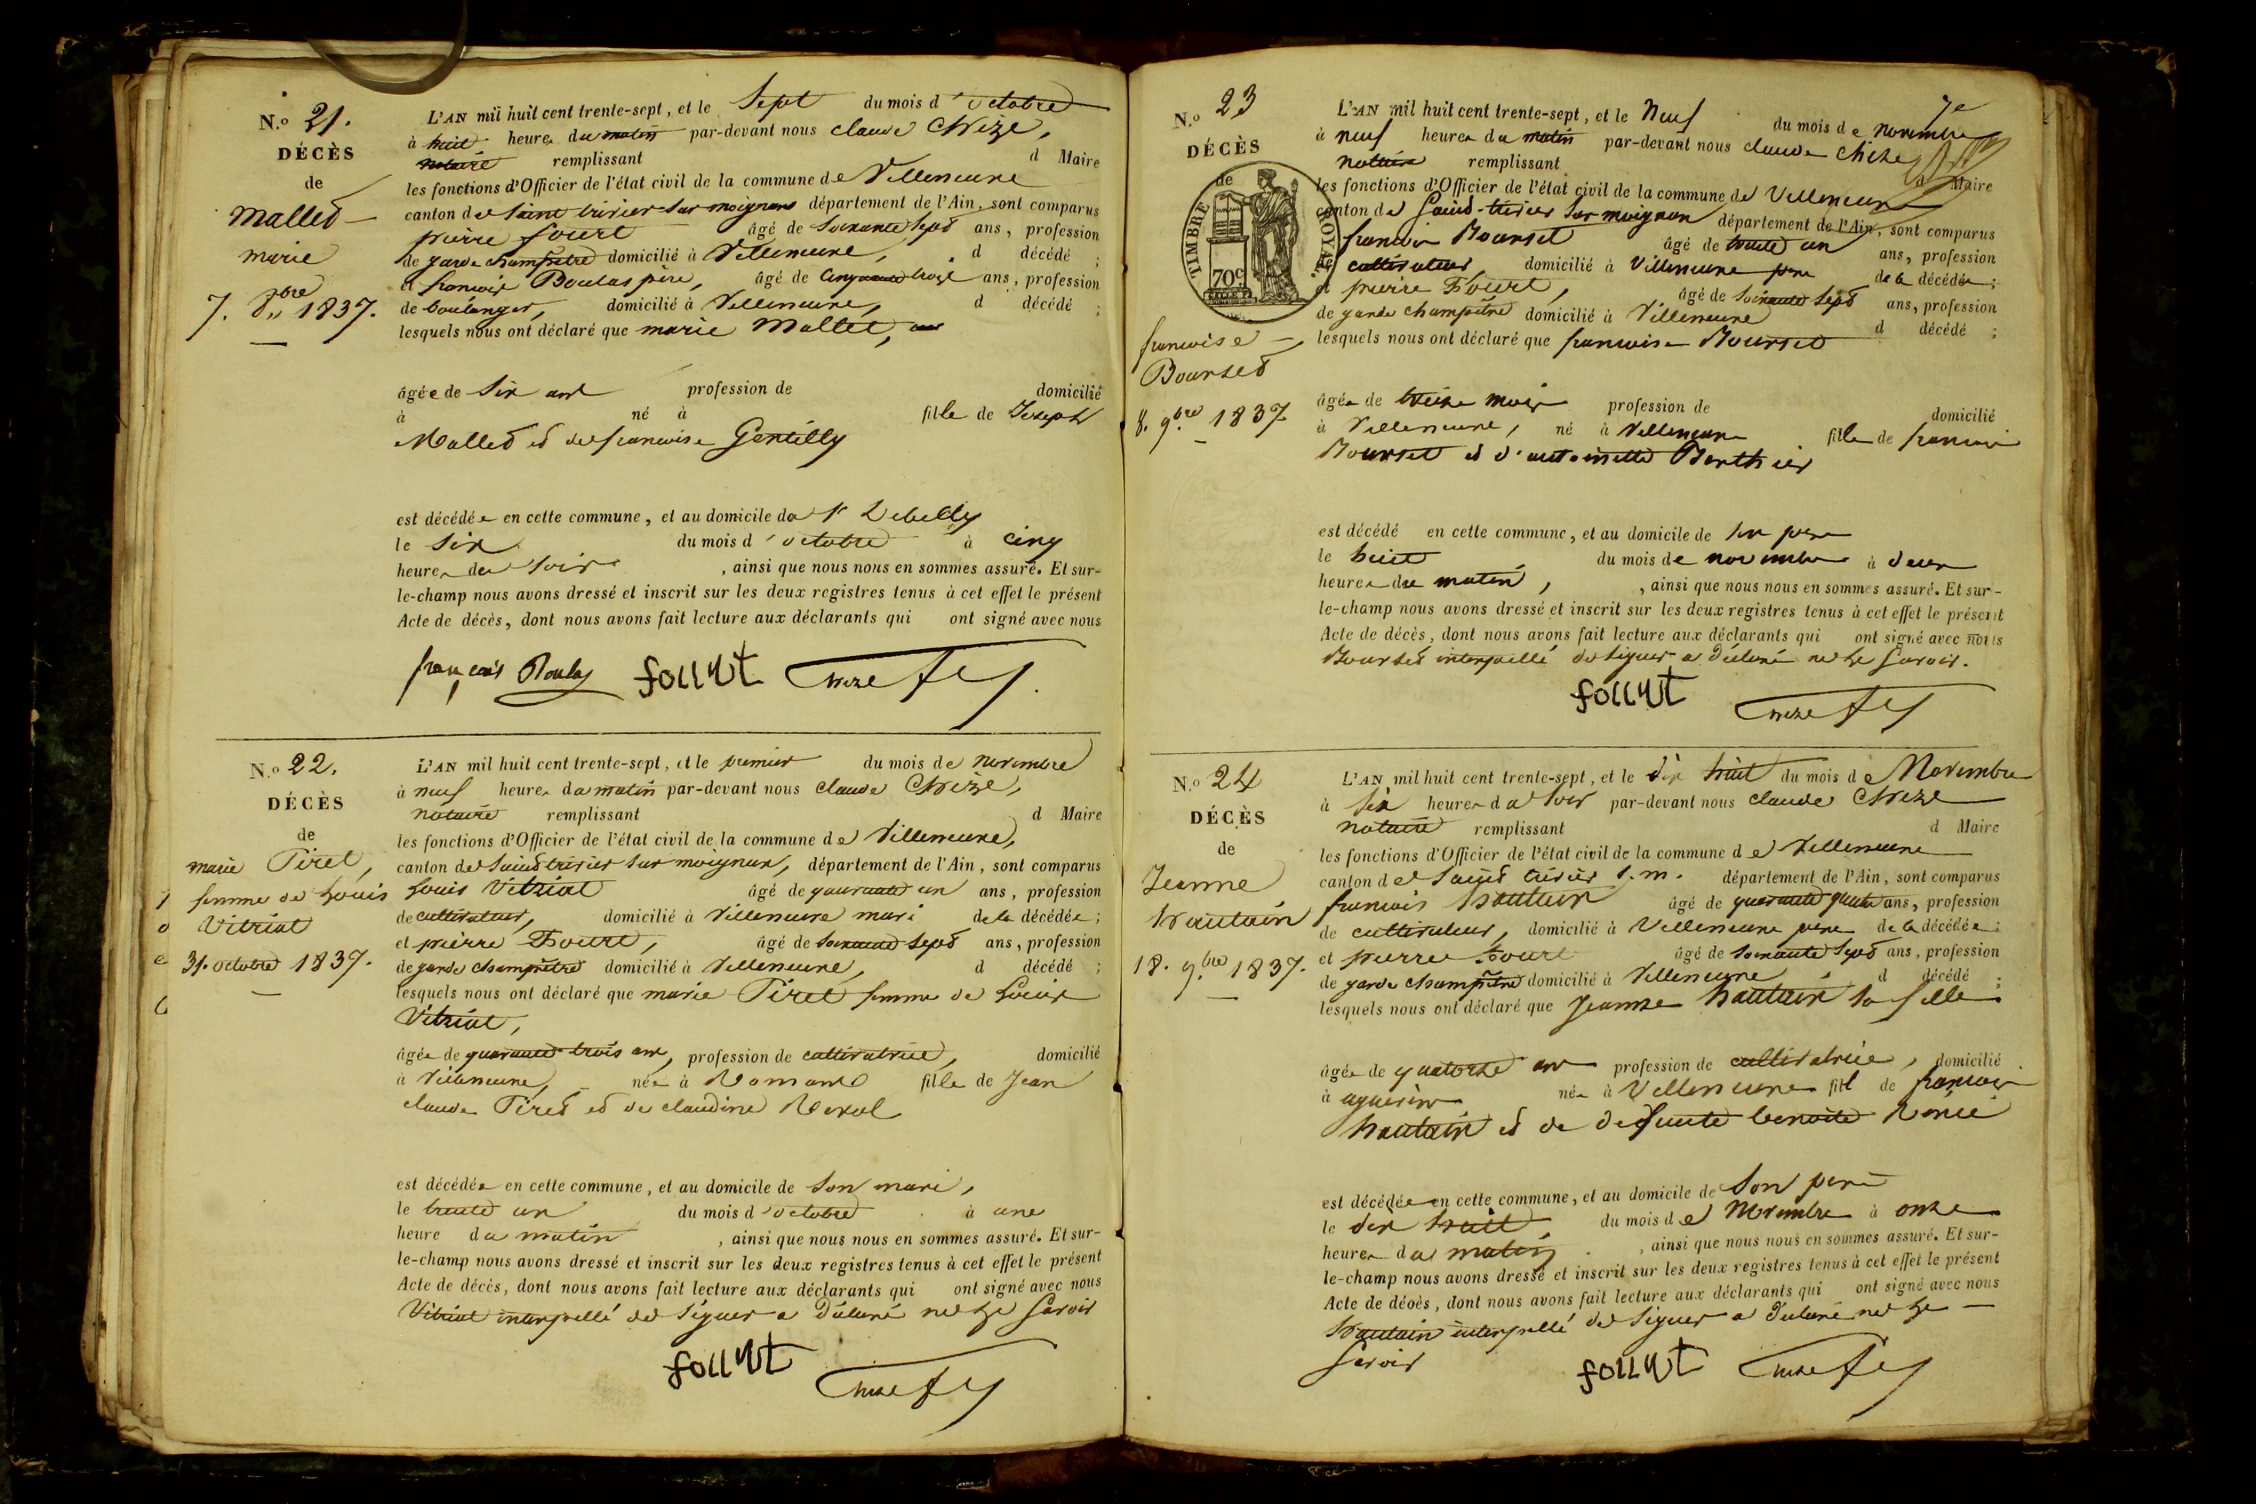 N.º 21.
DÉCÈS
de
Mallet
marie
7. 8bre 1837.
L'AN mil huit cent trente-sept, et le Sept du mois d'octobre
à huit heures du matin par-devant nous claude Chize,
notaire remplissant d Maire
les fonctions d'Officier de l'état civil de la commune de Villeneuve
canton de Saint trivier sur moignans département de l'Ain, sont comparus
pierre fourt âgé de Soixante Sept ans, profession
de garde champêtre domicilié à Villeneuve, d décédé ;
et françois Boulas père, âgé de Cinquante trois ans, profession
de boulanger, domicilié à Villeneuve, d décédé ;
lesquels nous ont déclaré que marie Mallet,
âgée de Six ans profession de domicilié
à né à fille de Joseph
Mallet et de françoise Gentilly
est décédée en cette commune, et au domicile du Sr Debelly
le Six du mois d'octobre à cinq
heures du Soir, ainsi que nous nous en sommes assuré. Et sur-
le-champ nous avons dressé et inscrit sur les deux registres tenus à cet effet le présent
Acte de décès, dont nous avons fait lecture aux déclarants qui ont signé avec nous
françois Boulas Chize
N.º 22.
DÉCÈS
de
marie Piret,
femme de Louis
Vitriat
31. octobre 1837.
L'AN mil huit cent trente-sept, et le premier du mois de novembre
à neuf heures du matin par-devant nous claude Chize,
notaire remplissant d Maire
les fonctions d'Officier de l'état civil de la commune de Villeneuve,
canton de Saint trivier sur moignans, département de l'Ain, sont comparus
Louis Vitriat âgé de quarante un ans, profession
de cultivateur, domicilié à Villeneuve mari de la décédée ;
et pierre Fourt, âgé de Soixante Sept ans, profession
de garde champêtre domicilié à Villeneuve, d décédé ;
lesquels nous ont déclaré que marie Piret femme de Louis
Vitriat,
âgée de quarante trois ans, profession de cultivatrice, domicilié
à Villeneuve, née à Romans fille de Jean
claude Piret et de claudine
est décédée en cette commune, et au domicile de Son mari,
le trente un du mois d'octobre à une
heure du matin, ainsi que nous nous en sommes assuré. Et sur-
le-champ nous avons dressé et inscrit sur les deux registres tenus à cet effet le présent
Acte de décès, dont nous avons fait lecture aux déclarants qui ont signé avec nous
Vitriat interpellé de Signer a Déclaré ne le Savoir
Chize
7e
N.º 23
DÉCÈS
de
TIMBRE ROYAL.
70c
françoise
Bourset
8. 9bre 1837
L'AN mil huit cent trente-sept, et le Neuf du mois de novembre
à neuf heures du matin par-devant nous claude Chize
notaire remplissant d Maire
les fonctions d'Officier de l'état civil de la commune de Villeneuve
canton de Saint-trivier Sur moignans département de l'Ain, sont comparus
françois Bourset âgé de trente un ans, profession
cultivateur domicilié à Villeneuve père de la décédée ;
et pierre Fourt, âgé de Soixante Sept ans, profession
de garde champêtre domicilié à Villeneuve d décédé ;
lesquels nous ont déclaré que françoise Bourset
âgée de treize mois profession de domicilié
à Villeneuve, né à Villeneuve fille de françois
Bourset et d'antoinette Berthier
est décédé en cette commune, et au domicile de Son père
le huit du mois de novembre à deux
heures du matin, ainsi que nous nous en sommes assuré. Et sur-
le-champ nous avons dressé et inscrit sur les deux registres tenus à cet effet le présent
Acte de décès, dont nous avons fait lecture aux déclarants qui ont signé avec nous
Bourset interpellé de Signer a Déclaré ne le Savoir.
Chize
N.º 24
DÉCÈS
de
Jeanne
hautain
18. 9bre 1837.
L'AN mil huit cent trente-sept, et le dix huit du mois de Novembre
à Six heures du Soir par-devant nous claude Chize
notaire remplissant d Maire
les fonctions d'Officier de l'état civil de la commune de Villeneuve
canton de Saint trivier S. m. département de l'Ain, sont comparus
françois hautain âgé de quarante quatre ans, profession
de cultivateur, domicilié à Villeneuve père de la décédée ;
et pierre Fourt âgé de Soixante Sept ans, profession
de garde champêtre domicilié à Villeneuve d décédé ;
lesquels nous ont déclaré que Jeanne hautain Sa fille
âgée de quatorze ans profession de cultivatrice, domicilié
à née à Villeneuve fill de françois
hautain et de defunte benoite
est décédée en cette commune, et au domicile de Son père
le dix huit du mois de Novembre à onze
heures du matin, ainsi que nous nous en sommes assuré. Et sur-
le-champ nous avons dressé et inscrit sur les deux registres tenus à cet effet le présent
Acte de décès, dont nous avons fait lecture aux déclarants qui ont signé avec nous
hautain interpellé de Signer a Déclaré ne le
Savoir
Chize